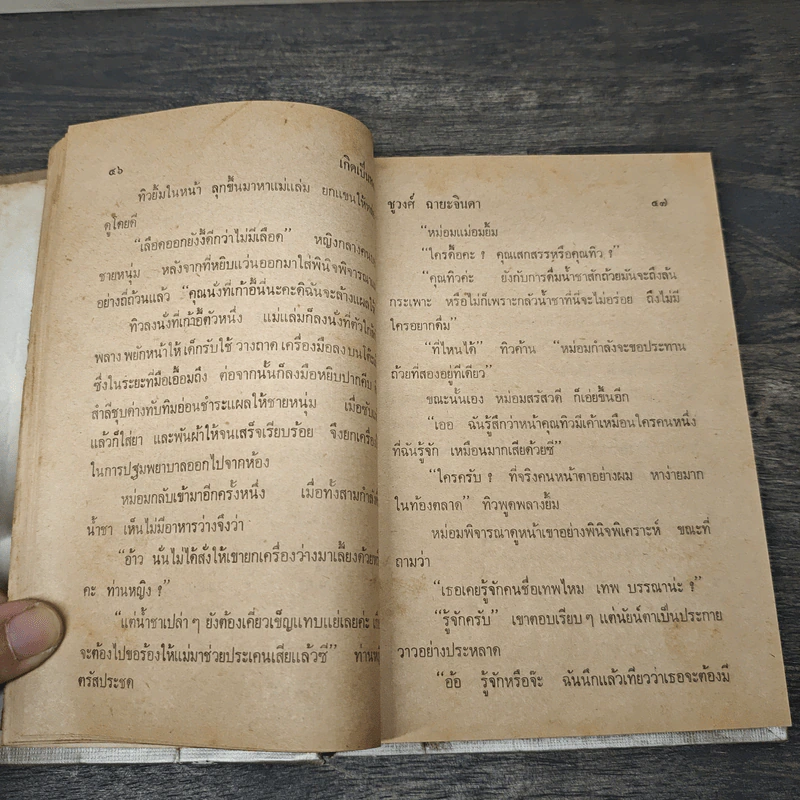 ๔๖
เกิดเป็น
ทิวยิ้มในหน้า ลุกขึ้นมาหาแม่แล่ม ยกแขนให้
ดูโดยดี
“เลือดออกยังงี้ดีกว่าไม่มีเลือด” หญิงกลางคน
ชายหนุ่ม หลังจากที่หยิบแว่นออกมาใส่พินิจพิจารณา
อย่างถี่ถ้วนแล้ว “คุณนั่งที่เก้าอี้นี่นะคะดิฉันจะล้างแผลให้
ทิวลงนั่งที่เก้าอี้ตัวหนึ่ง แม่แล่มก็ลงนั่งที่ตัวใกล้
พลาง พยักหน้าให้ เด็กรับใช้ วางถาด เครื่องมือลง บน โต๊ะ
ซึ่งในระยะที่มือเอื้อมถึง ต่อจากนั้นก็ลงมือหยิบปากคีบ
สำลีชุบด่างทับทิมอ่อนชำระแผลให้ชายหนุ่ม เมื่อซับ
แล้วก็ใส่ยา และพันผ้าให้จนเสร็จเรียบร้อย จึงยกเครื่อง
ในการปฐมพยาบาลออกไปจากห้อง
หม่อมกลับเข้ามาอีกครั้งหนึ่ง เมื่อทั้งสามกำลัง
น้ำชา เห็นไม่มีอาหารว่างจึงว่า
“อ้าว นั่นไม่ได้สั่งให้เขายกเครื่องว่างมาเลี้ยงด้วย
คะ ท่านหญิง ?”
“แต่น้ำชาเปล่า ๆ ยังต้องเคี่ยวเข็ญแทบแย่เลยค่ะ
จะต้องไปขอร้องให้แม่มาช่วยประเคนเสียแล้วซี” ท่าน
ตรัสประชด
ชูวงศ์ ฉายะจินดา
๔๗
“หม่อมแม่อมยิ้ม
“ใครดื้อคะ ? คุณเสกสรรหรือคุณทิว ?”
“คุณทิวค่ะ ยังกับการดื่มน้ำชาสักถ้วยมันจะถึงล้น
กระเพาะ หรือไม่ก็เพราะกลัวน้ำชาที่นี่จะไม่อร่อย ถึงไม่มี
ใครอยากดื่ม”
“ที่ไหนได้” ทิวค้าน “หม่อมกำลังจะขอประทาน
ถ้วยที่สองอยู่ทีเดียว”
ขณะนั้นเอง หม่อมสรัสวดี ก็เอ่ยขึ้นอีก
“เออ ฉันรู้สึกว่าหน้าคุณทิวมีเค้าเหมือนใครคนหนึ่ง
ที่ฉันรู้จัก เหมือนมากเสียด้วยซี”
“ใครครับ ? ที่จริงคนหน้าตาอย่างผม หาง่ายมาก
ในท้องตลาด” ทิวพูดพลางยิ้ม
หม่อมพิจารณาดูหน้าเขาอย่างพินิจพิเคราะห์ ขณะที่
ถามว่า
“เธอเคยรู้จักคนชื่อเทพไหม เทพ บรรณาน่ะ ?”
“รู้จักครับ” เขาตอบเรียบ ๆ แต่นัยน์ตาเป็นประกาย
วาวอย่างประหลาด
“อ้อ รู้จักหรือจ๊ะ ฉันนึกแล้วเทียวว่าเธอจะต้องมี